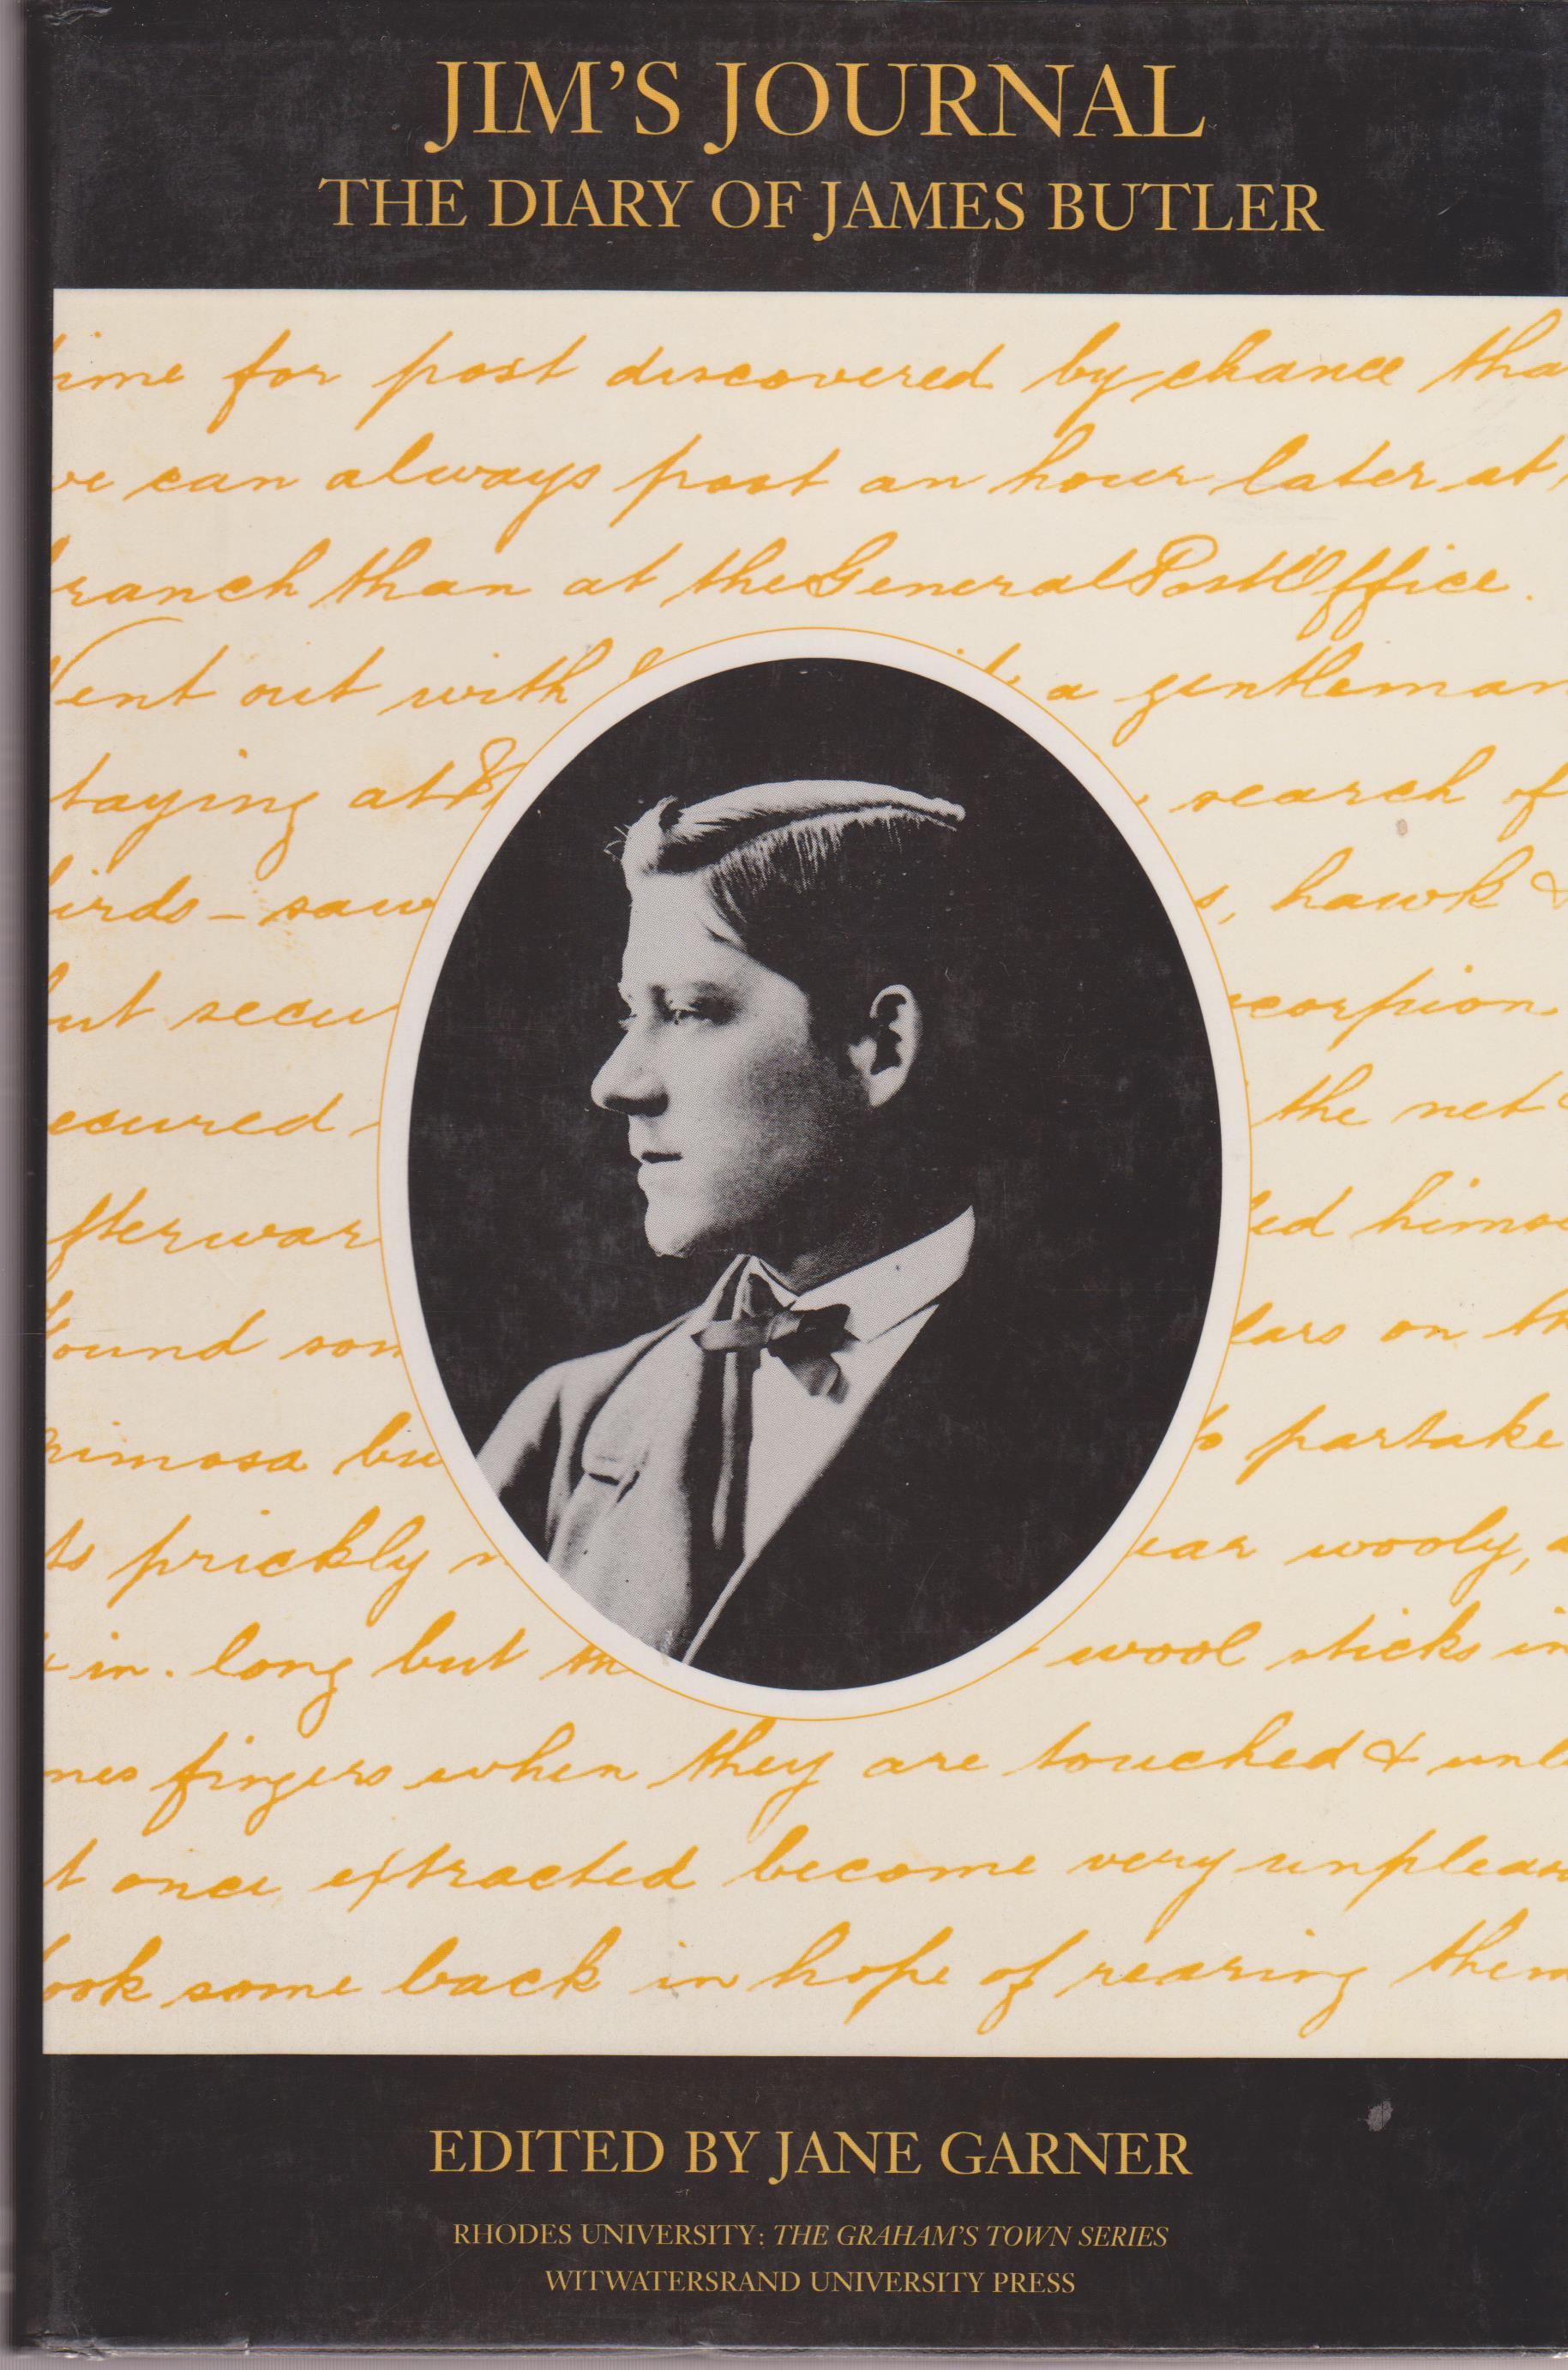 JIM'S JOURNAL
THE DIARY OF JAMES BUTLER
ime for post discovered by chance tha
we can always post an hour later at
ranch than at the General Post Office.
Went out with a gentleman
taying at search of
irds - saw s, hawk &
ut secu scorpion
ecured - the net
fterwar led himse
found som lars on th
mimosa bu to partake
ts prickly n ear wooly, a
in. long but th wool sticks in
nes fingers when they are touched & unl
t once extracted become very unpleas
ook some back in hope of rearing them
EDITED BY JANE GARNER
RHODES UNIVERSITY: THE GRAHAM'S TOWN SERIES
WITWATERSRAND UNIVERSITY PRESS